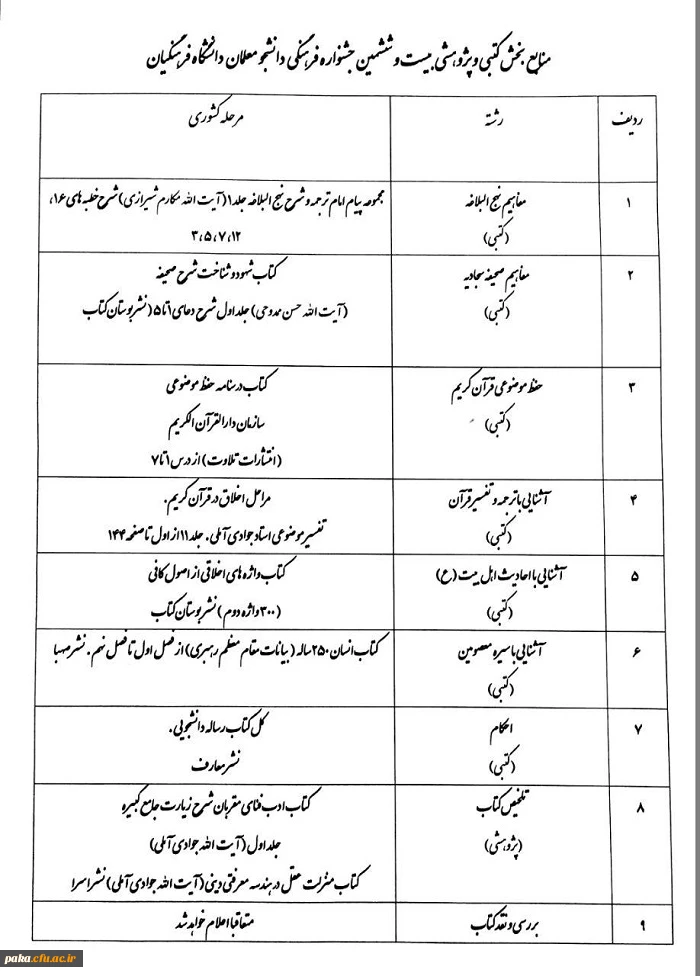 منابع بخش کتبی و پژوهشی بیست و ششمین جشنواره فرهنگی دانشجو معلمان دانشگاه فرهنگیان
ردیف
رشته
مرحله کشوری
۱
مفاهیم نهج البلاغه
(کتبی)
مجموعه پیام امام ترجمه و شرح نهج البلاغه جلد ۱ (آیت الله مکارم شیرازی) شرح خطبه های ۱۶،
۳،۵،۷،۱۲
۲
مفاهیم صحیفه سجادیه
(کتبی)
کتاب شهود و شناخت شرح صحیفه
(آیت الله حسن ممدوحی) جلد اول شرح دعای ۱ تا ۵ (نشر بوستان کتاب
۳
حفظ موضوعی قرآن کریم
(کتبی)
کتاب درسنامه حفظ موضوعی
سازمان دارالقرآن الکریم
(انتشارات تلاوت) از درس ۱ تا ۷
۴
آشنایی با ترجمه و تفسیر قرآن
(کتبی)
مراحل اخلاق در قرآن کریم.
تفسیر موضوعی استاد جوادی آملی. جلد ۱۱ از اول تا صفحه ۱۴۴
۵
آشنایی با احادیث اهل بیت (ع)
(کتبی)
کتاب واژه های اخلاقی از اصول کافی
(۳۰۰ واژه دوم) نشر بوستان کتاب
۶
آشنایی با سیره معصومین
(کتبی)
کتاب انسان ۲۵۰ ساله (بیانات مقام معظم رهبری) از فصل اول تا فصل نهم. نشر صهبا
۷
احکام
(کتبی)
کل کتاب رساله دانشجویی.
نشر معارف
۸
تلخیص کتاب
(پژوهشی)
کتاب ادب فنای مقربان شرح زیارت جامع کبیره
جلد اول (آیت الله جوادی آملی)
کتاب منزلت عقل در هندسه معرفتی دینی (آیت الله جوادی آملی) نشر اسرا
۹
بررسی و نقد کتاب
متعاقبا اعلام خواهد شد
paka.cfu.ac.ir